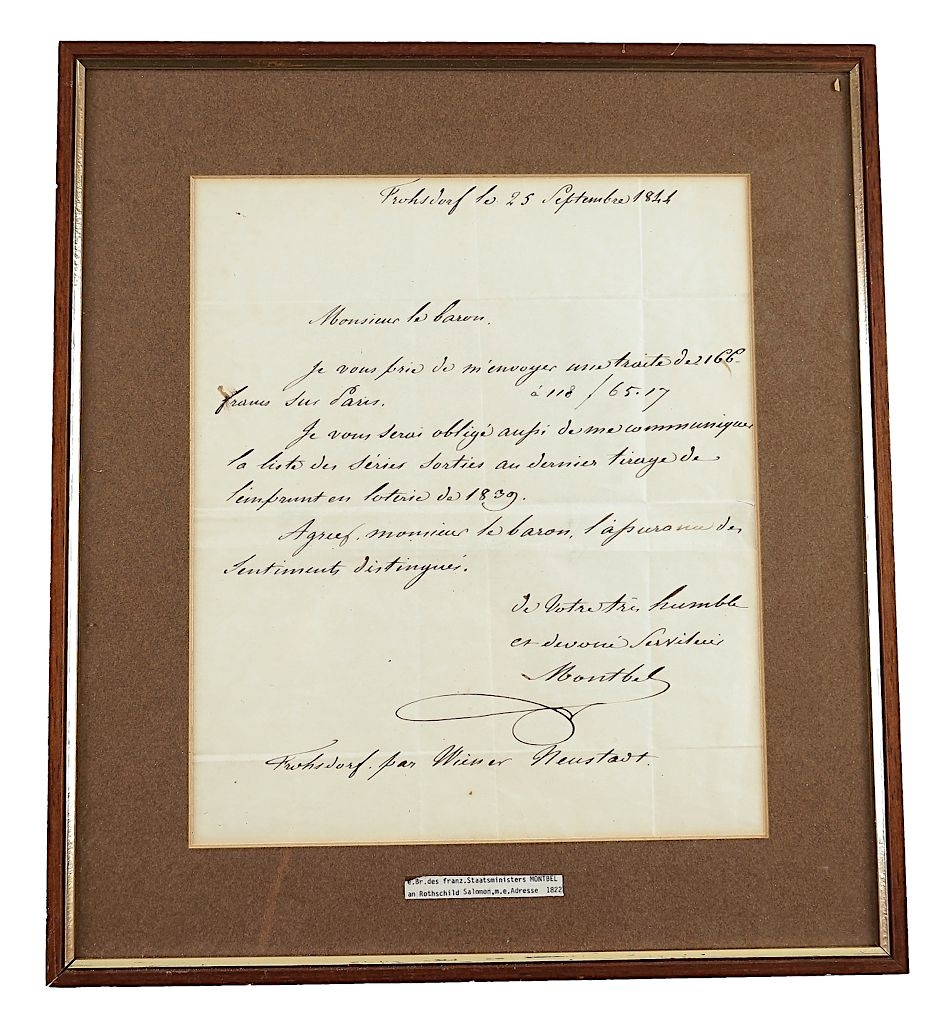 Frohsdorf le 25 Septembre 1844
Monsieur le baron,
Je vous prie de m'envoyer une traite de 2166
francs sur Paris. à 118 / 65.17
Je vous serai obligé aussi de me communiquer
la liste des séries sorties au dernier tirage de
l'emprunt en loterie de 1839.
Agréez, monsieur le baron, l'assurance des
sentiments distingués.
de Votre très humble
et devoué Serviteur
Montbel
Frohsdorf. par Wiener Neustadt.
e.Br.des franz.Staatsministers MONTBEL
an Rothschild Salomon,m.e.Adresse 1822